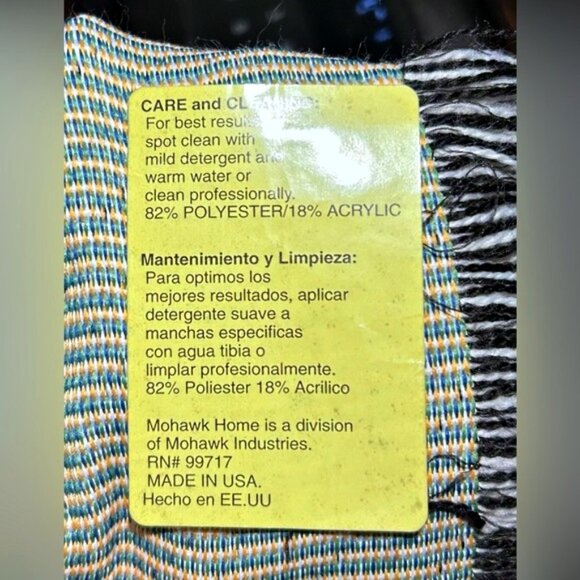 CARE and CLEANING:
For best results
spot clean with
mild detergent and
warm water or
clean professionally.
82% POLYESTER/18% ACRYLIC
Mantenimiento y Limpieza:
Para optimos los
mejores resultados, aplicar
detergente suave a
manchas especificas
con agua tibia o
limplar profesionalmente.
82% Poliester 18% Acrilico
Mohawk Home is a division
of Mohawk Industries.
RN# 99717
MADE IN USA.
Hecho en EE.UU